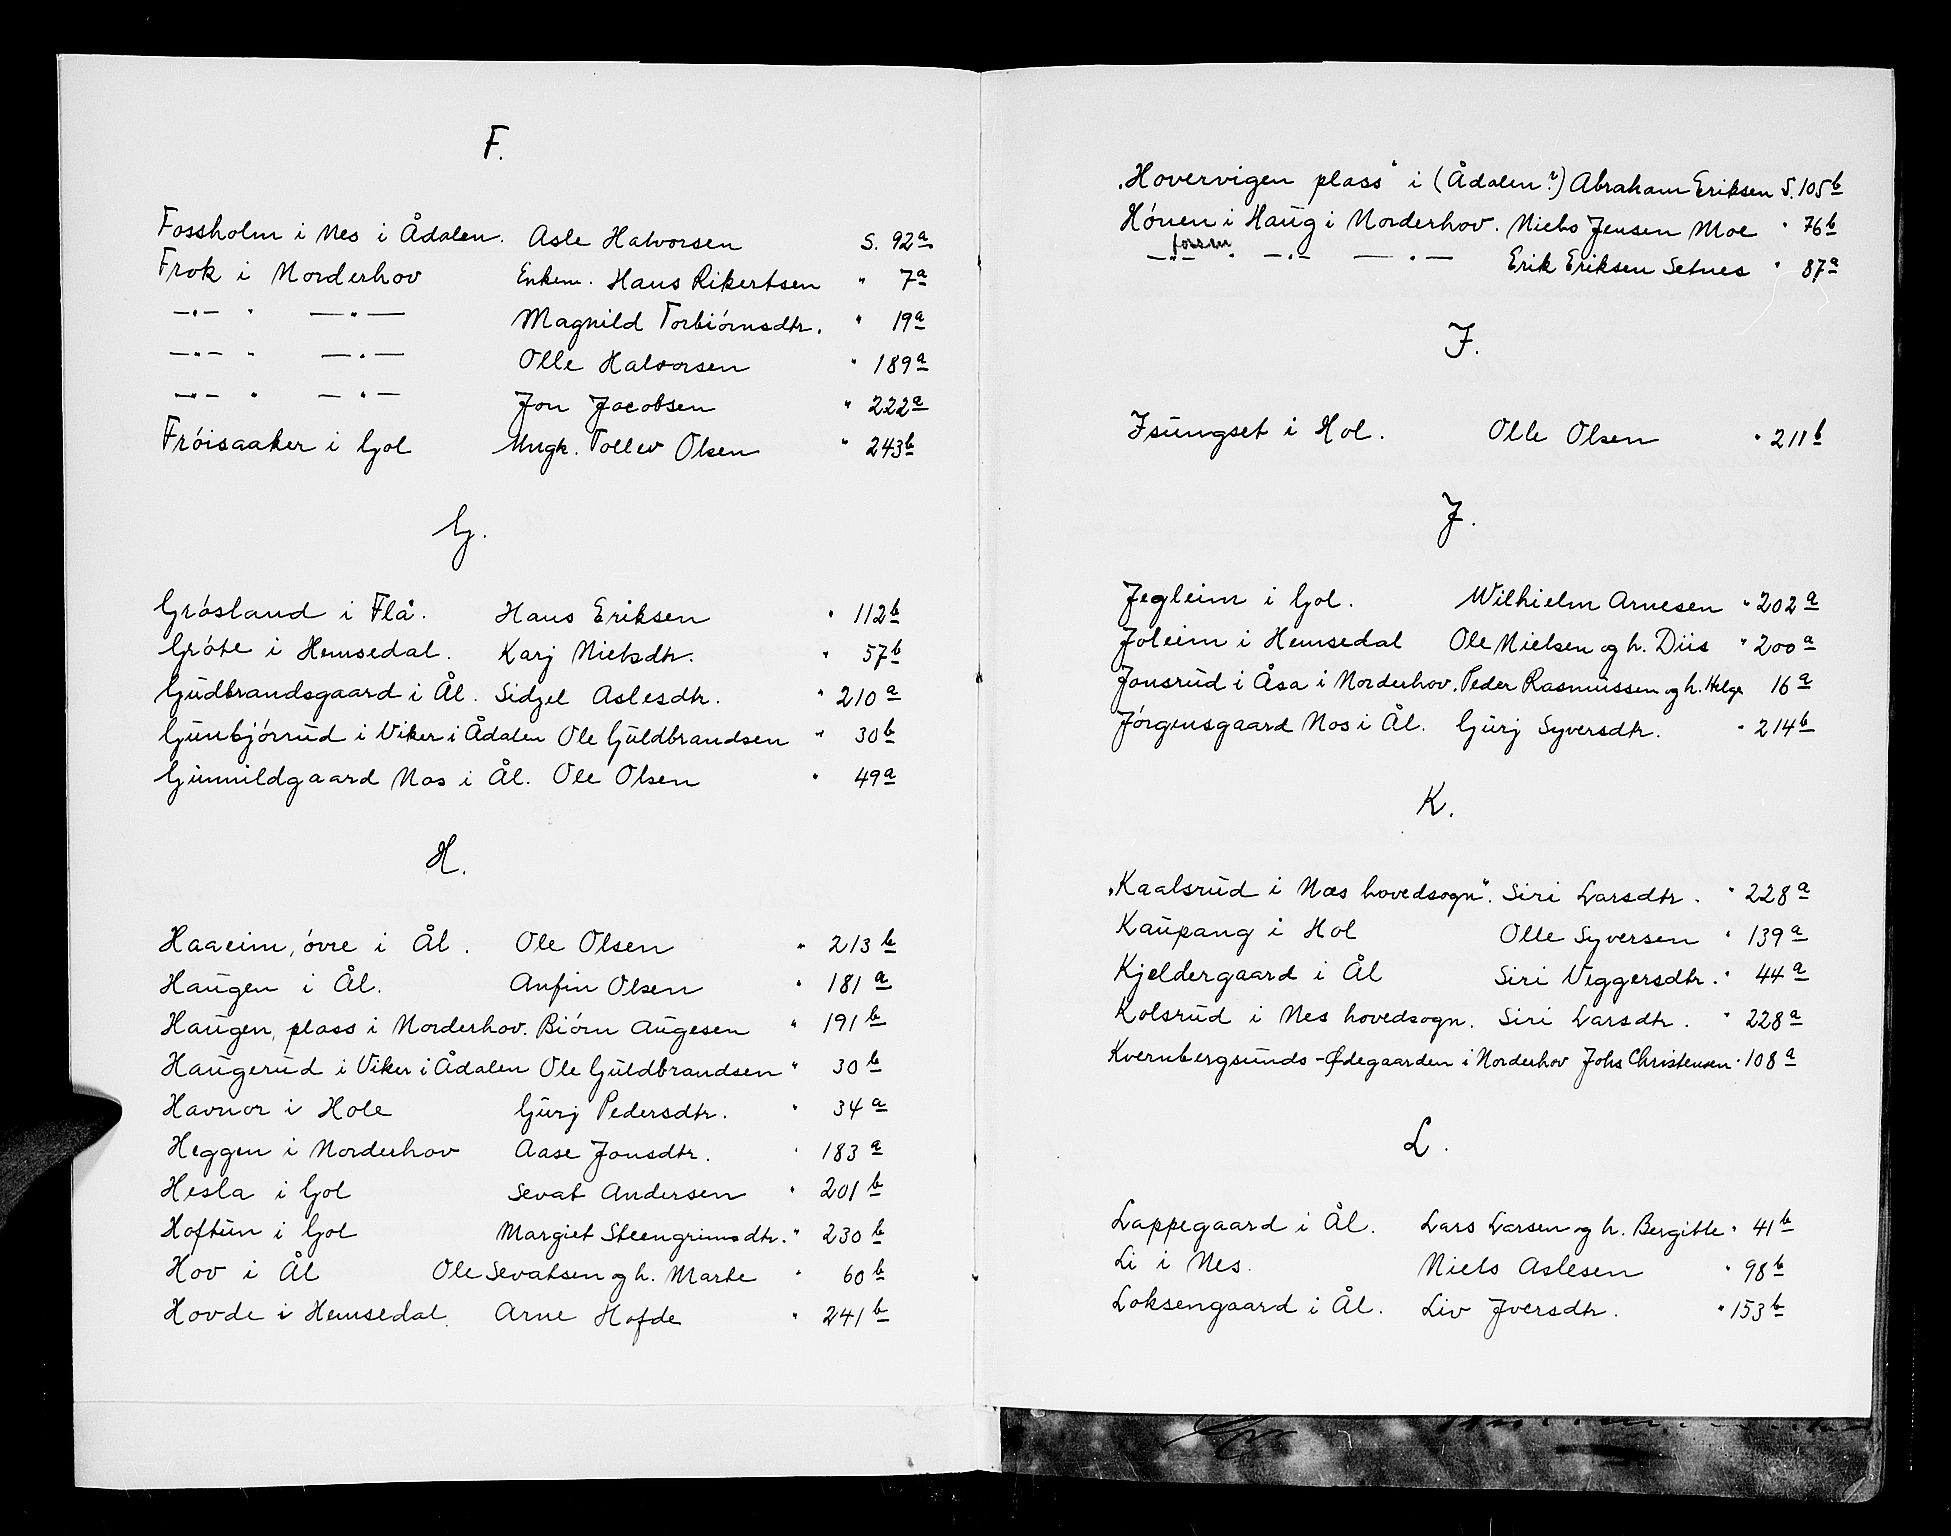 F.
Fossholm i Nes i Ådalen. Asle Halvorsen S. 92a
Frok i Norderhov Enkem. Hans Rikertsen " 7a
—"— " —"— Magnild Torbiørnsdtr. " 19a
—"— " —"— Olle Halvorsen " 189a
—"— " —"— Jon Jacobsen " 222a
Frøisaaker i Gol Ungk. Tollev Olsen " 243b
G.
Grøsland i Flå. Hans Eriksen " 112b
Grøte i Hemsedal. Karj Nielsdtr. " 57b
Gudbrandsgaard i Ål. Sidzel Aslesdtr. " 210a
Gunbjørrud i Viker i Ådalen Ole Guldbrandsen " 30b
Gunnildgaard Nos i Ål. Ole Olsen " 49a
H.
Haaeim, øvre i Ål. Ole Olsen " 213b
Haugen i Ål. Anfin Olsen " 181a
Haugen, plass i Norderhov. Biørn Augesen " 191b
Haugerud i Viker i Ådalen Ole Guldbrandsen " 30b
Havnor i Hole Gurj Pedersdtr. " 34a
Heggen i Norderhov Aase Jonsdtr. " 183a
Hesla i Gol Sevat Andersen " 201b
Hoftun i Gol Margiet Steengrimsdtr. " 230b
Hov i Ål Ole Sevatsen og h. Marte " 60b
Hovde i Hemsedal. Arne Hofde " 241b
"Hovervigen plass" i (Ådalen?) Abraham Eriksen S. 105b
Hønen i Haug i Norderhov. Niels Jensen Moe " 76b
—"— fossen " —"— —"— Erik Eriksen Setnes " 87a
I.
Isungset i Hol. Olle Olsen " 211b
J.
Jegleim i Gol. Wilhielm Arnesen " 202a
Joleim i Hemsedal Ole Nielsen og h. Diis " 200a
Jonsrud i Åsa i Norderhov. Peder Rasmussen og h. Helge 16a
Jørgensgaard Nos i Ål. Gurj Syversdtr. " 214b
K.
"Kaalsrud i Næs hovedsogn". Siri Larsdtr. " 228a
Kaupang i Hol Olle Syversen " 139a
Kjeldergaard i Ål Siri Viggersdtr. " 44a
Kolsrud i Nes hovedsogn. Siri Larsdtr. " 228a
Kvernbergsunds-Ødegaarden i Norderhov Johs Christensen " 108a
L.
Lappegaard i Ål. Lars Larsen og h. Bergitte " 41b
Li i Nes. Niels Aslesen " 98b
Loksengaard i Ål. Liv Iversdtr. " 153b